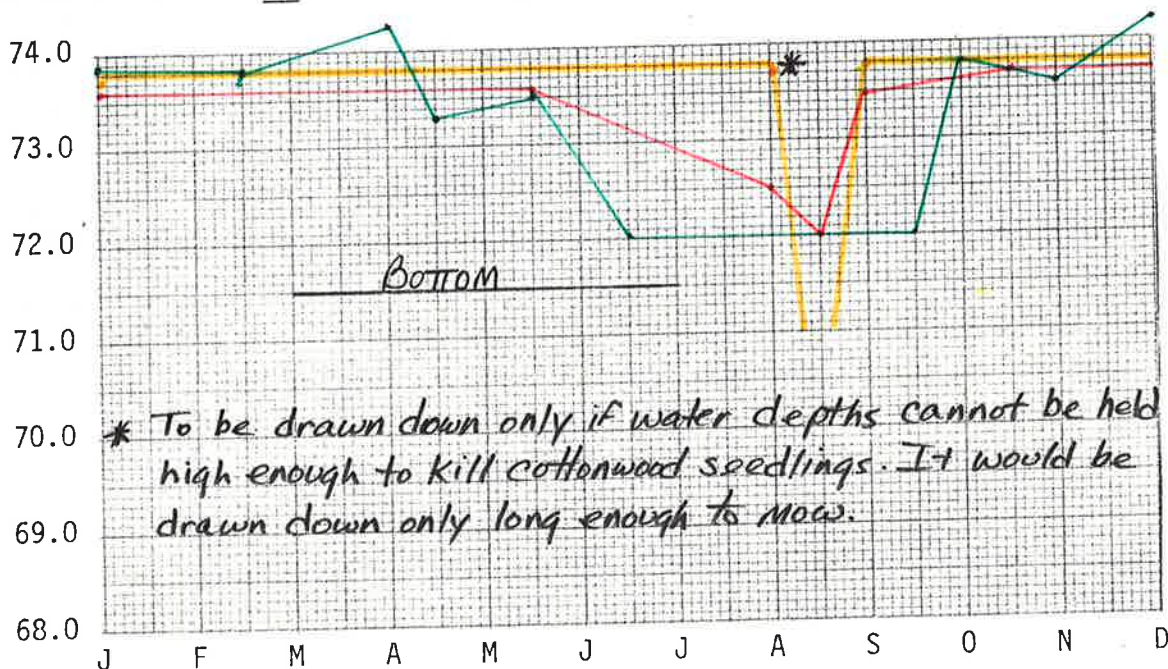 74.0
*
73.0
72.0
BOTTOM
71.0
70.0
* To be drawn down only if water depths cannot be held
high enough to kill cottonwood seedlings. It would be
69.0
drawn down only long enough to mow.
68.0
J F M A M J J A S O N D